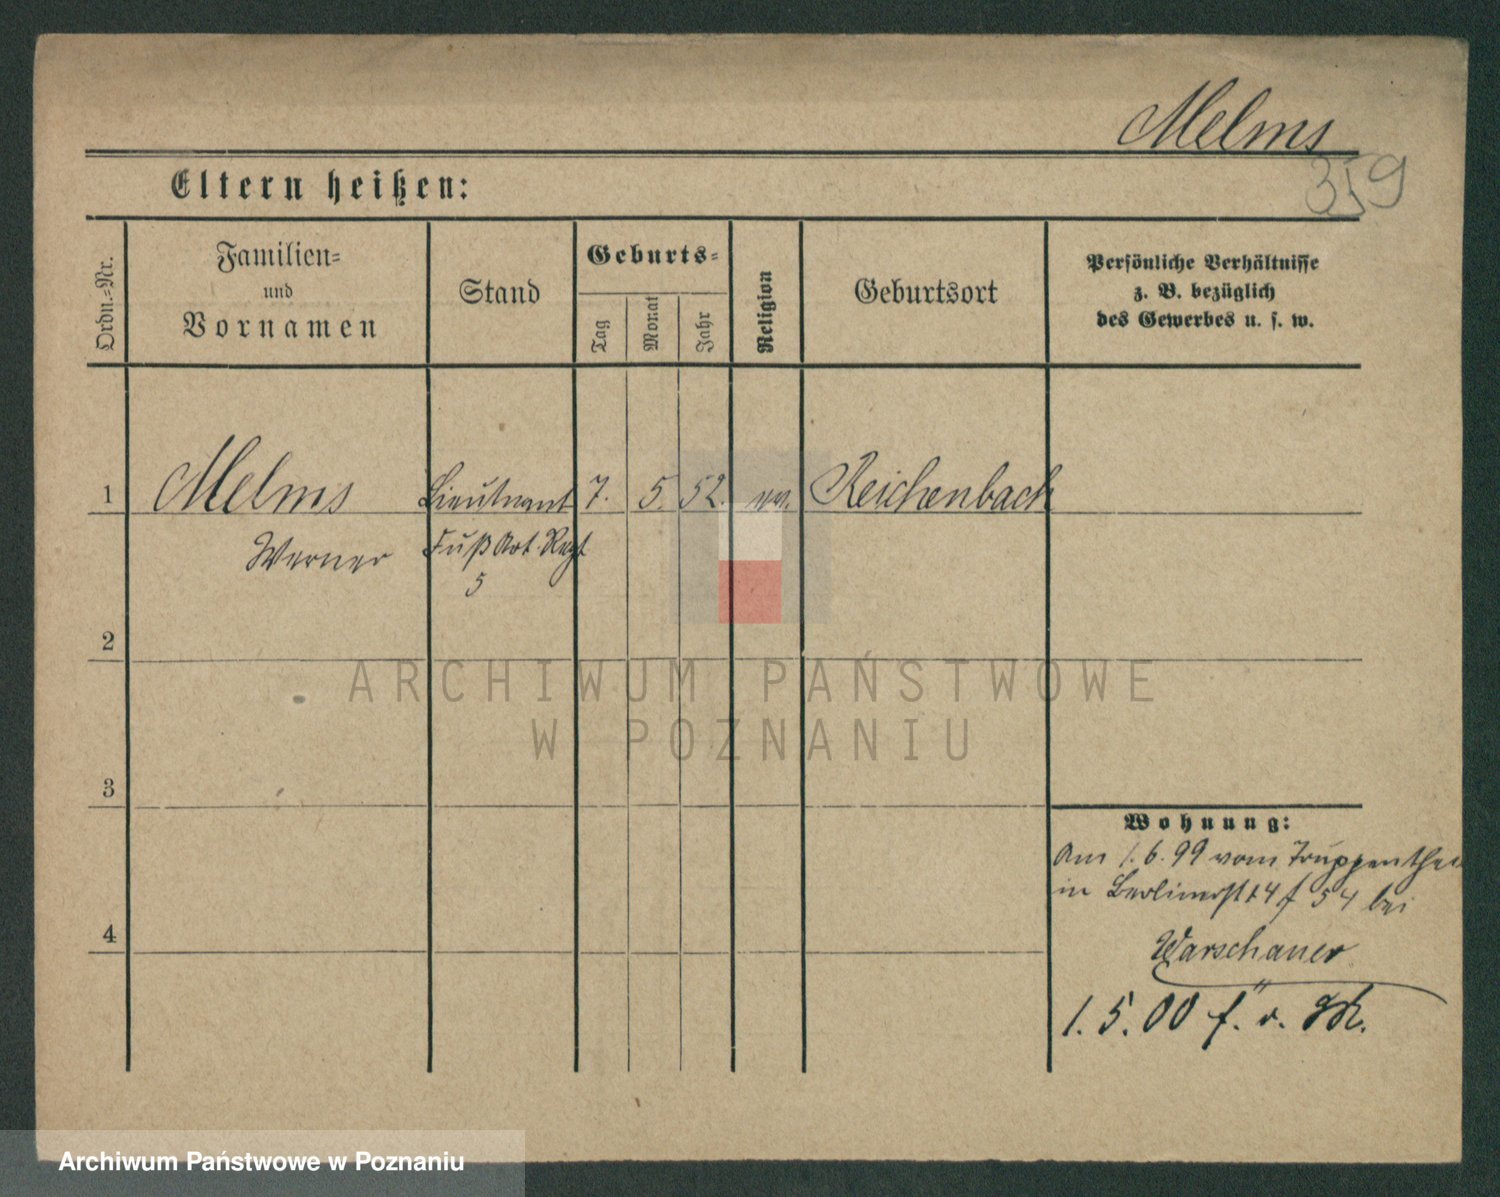 Melms
359
Eltern heißen:
Ordn.-Nr.
Familien-
und
Vornamen
Stand
Geburts-
Tag
Monat
Jahr
Religion
Geburtsort
Persönliche Verhältnisse
z. B. bezüglich
des Gewerbes u. s. w.
1 Melms Lieutnant 7. 5. 52. ev. Reichenbach
Werner Fuß Art. Regt
5
2
ARCHIWUM PAŃSTWOWE
W POZNANIU
3
Wohnung:
Am 1.6.99 vom Truppenthei
in Berlinerst 54 bei
Warschauer
4
1. 5. 00
Archiwum Państwowe w Poznaniu